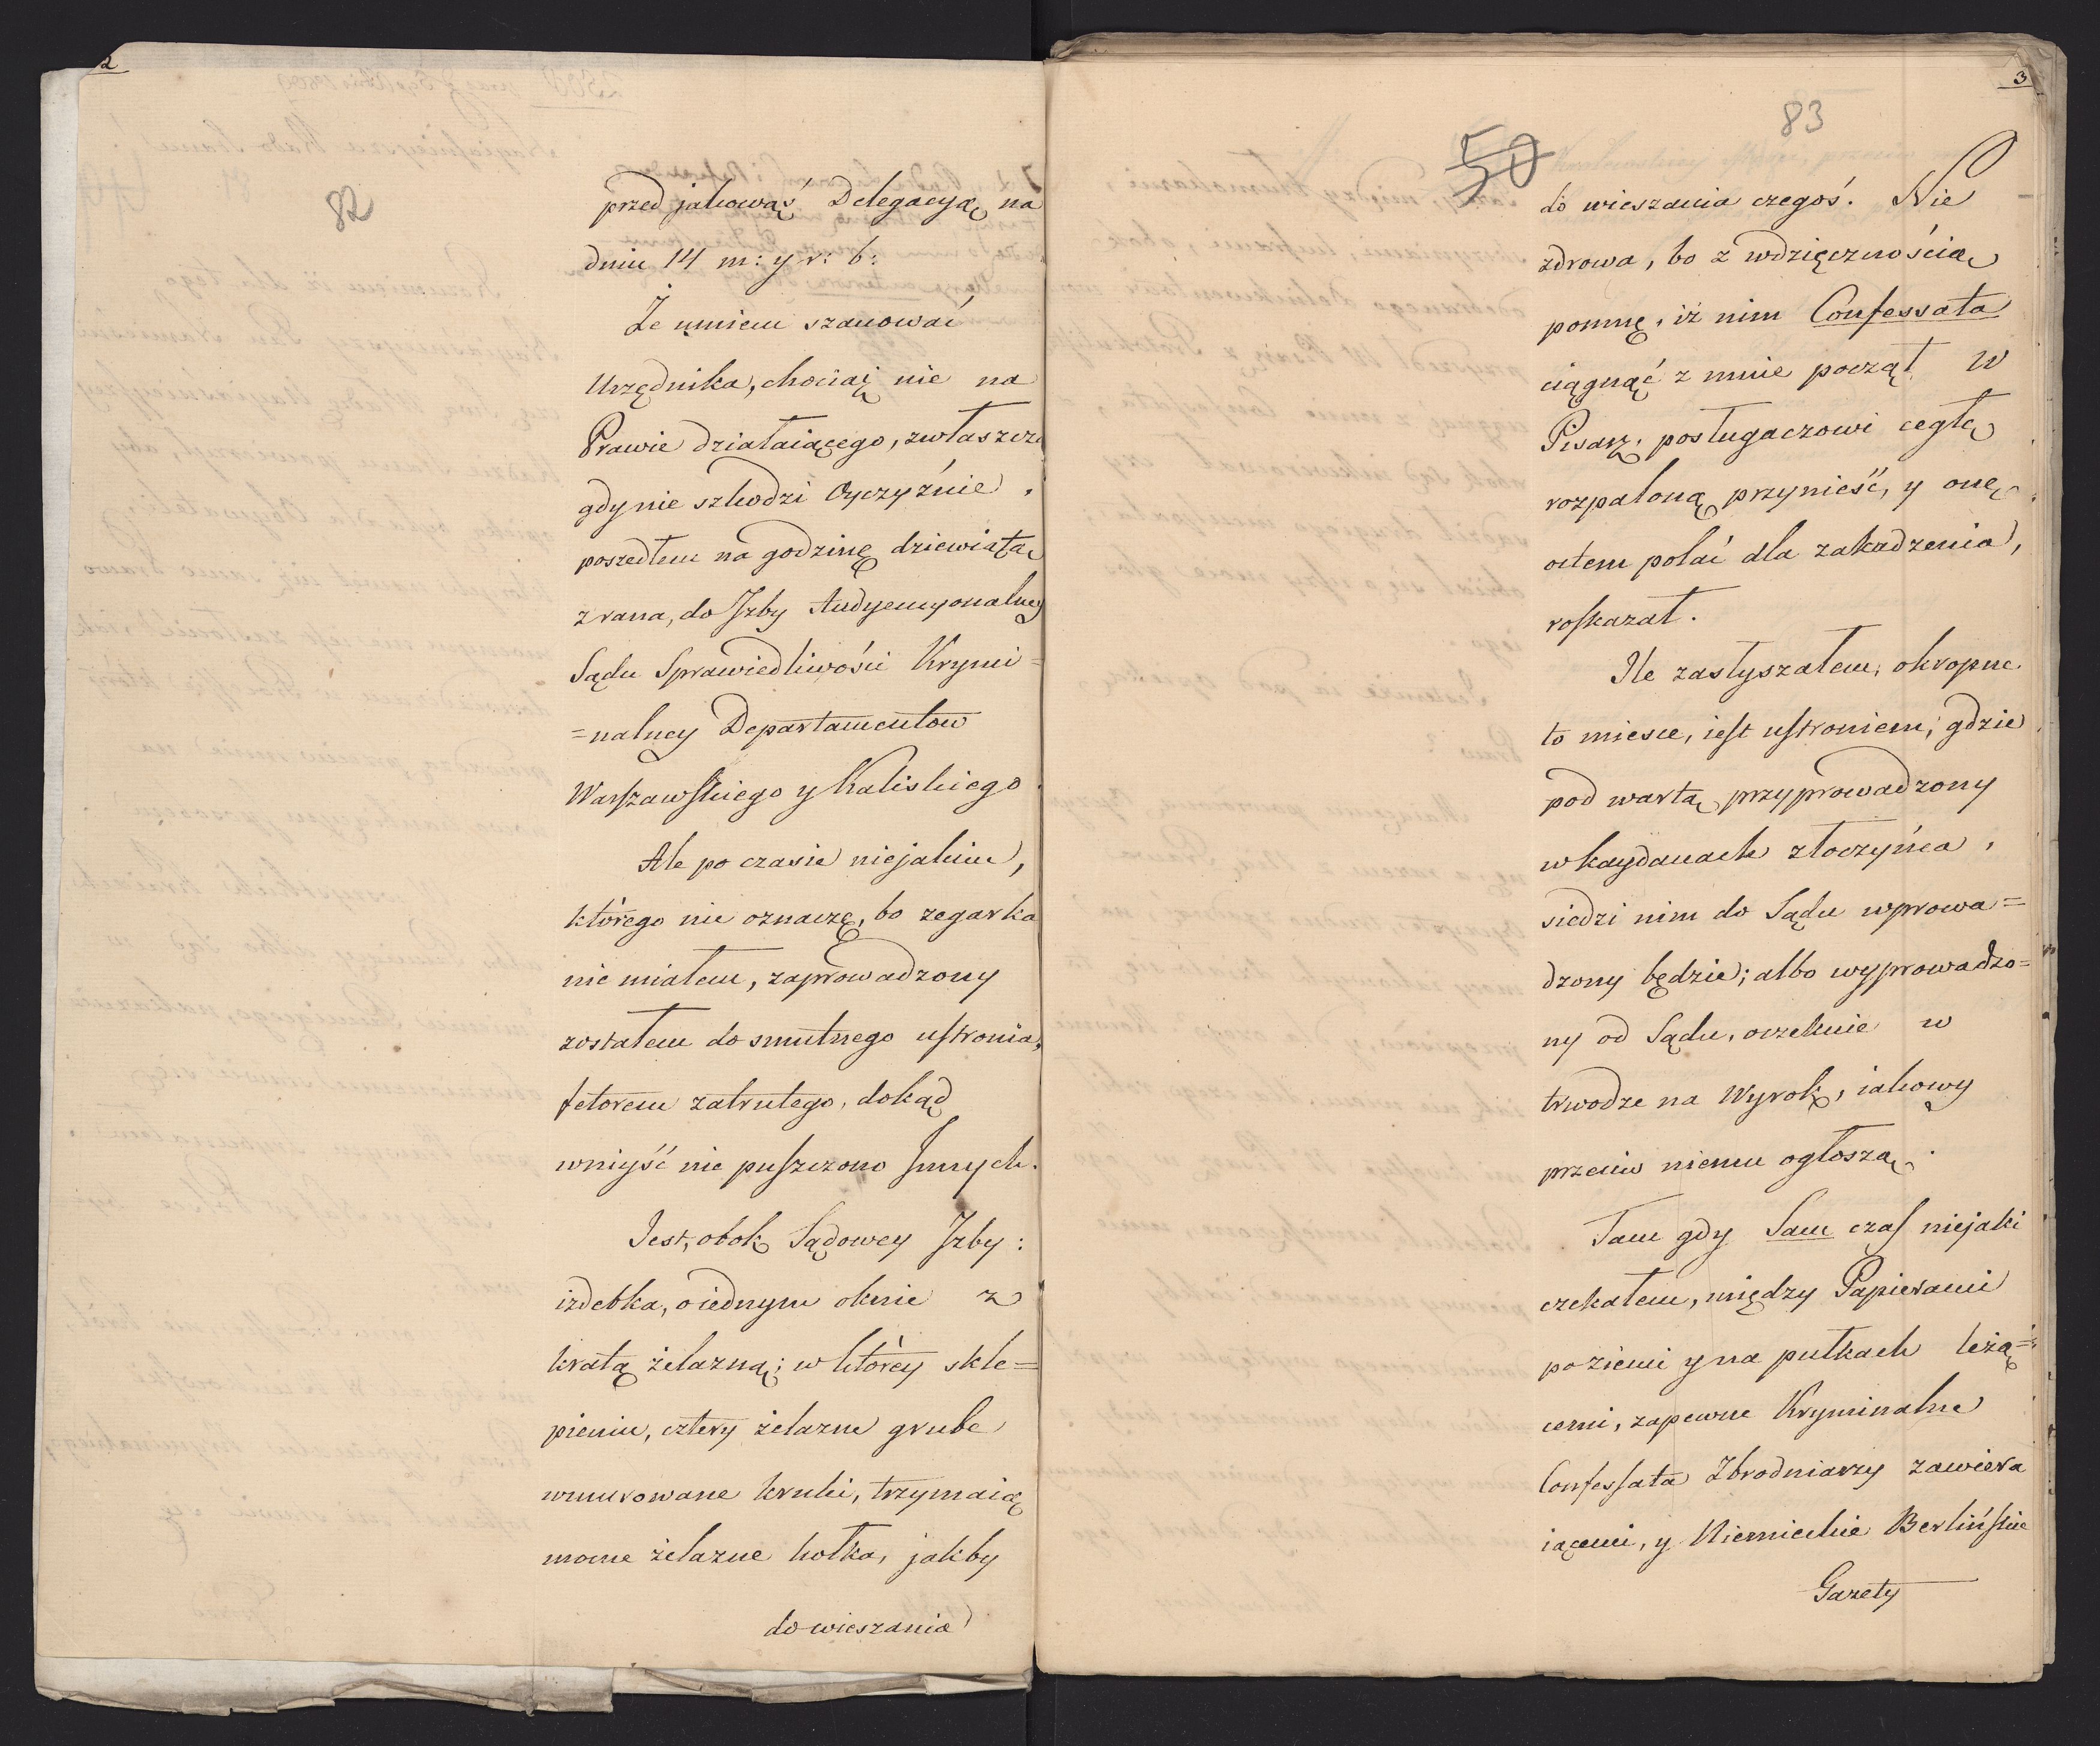 2
82
przed jakowąś Delegacyą na
dniu 14 m: y r: b:
Że umiem szanować
Urzędnika, chociaż nie na
Prawie działaiącego, zwłaszcza
gdy nie szkodzi Oyczyźnie,
poszedłem na godzinę dziewiątą
z rana, do Jzby Audyencyonalney
Sądu Sprawiedliwości Krymi=
=nalney Departamentow
Warszawskiego y Kaliskiego.
Ale po czasie niejakim,
którego nie oznaczę, bo zegarka
nie miałem, zaprowadzony
zostałem do smutnego ustronia,
fetorem zatrutego, dokąd
wniyść nie puszczono Jnnych.
Jest, obok Sądowey Jzby:
izdebka, o iednym oknie z
kratą żelazną; w którey skle=
pieniu, cztery żelazne grube
wmurowane kruki, trzymaią
mocne żelazne kołka, jakby
do wieszania
3
83
50
do wieszania czegoś. Nie
zdrowa, bo z wdzięcznością
pomnę, iż nim Confessata
ciągnąć z mnie począł W
Pisarz, posługaczowi cegłę
rozpaloną przynieść, y onę
octem polać dla zakadzenia,
roskazał.
Ile zasłyszałem, okropne
to miesce, iest ustroniem; gdzie
pod wartą przyprowadzony
w kaydanach złoczyńca,
siedzi nim do Sądu wprowa=
dzony będzie; albo wyprowadzo=
ny od Sądu, oczekuie w
trwodze na Wyrok, iakowy
przeciw niemu ogłoszą.
Tam gdy Sam czas niejaki
czekałem, między Papierami
po ziemi y na pułkach leżą=
cemi, zapewne Kryminalne
Confessata Zbrodniarzy zawiera
iącemi, y Niemieckie Berlińskie
Gazety